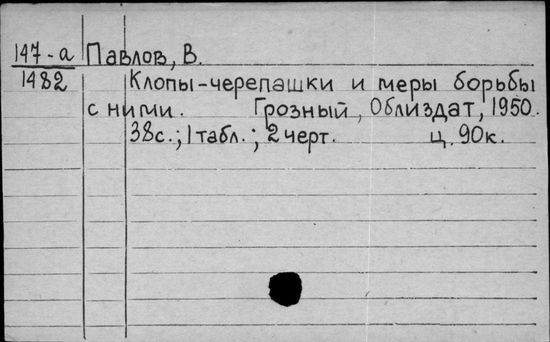 147-а Павлов, В.
1482 Клопы-черепашки и меры борьбы
с ними. Грозный, Облиздат, 1950.
38с.; 1 табл.; 2 черт. ц. 90к.